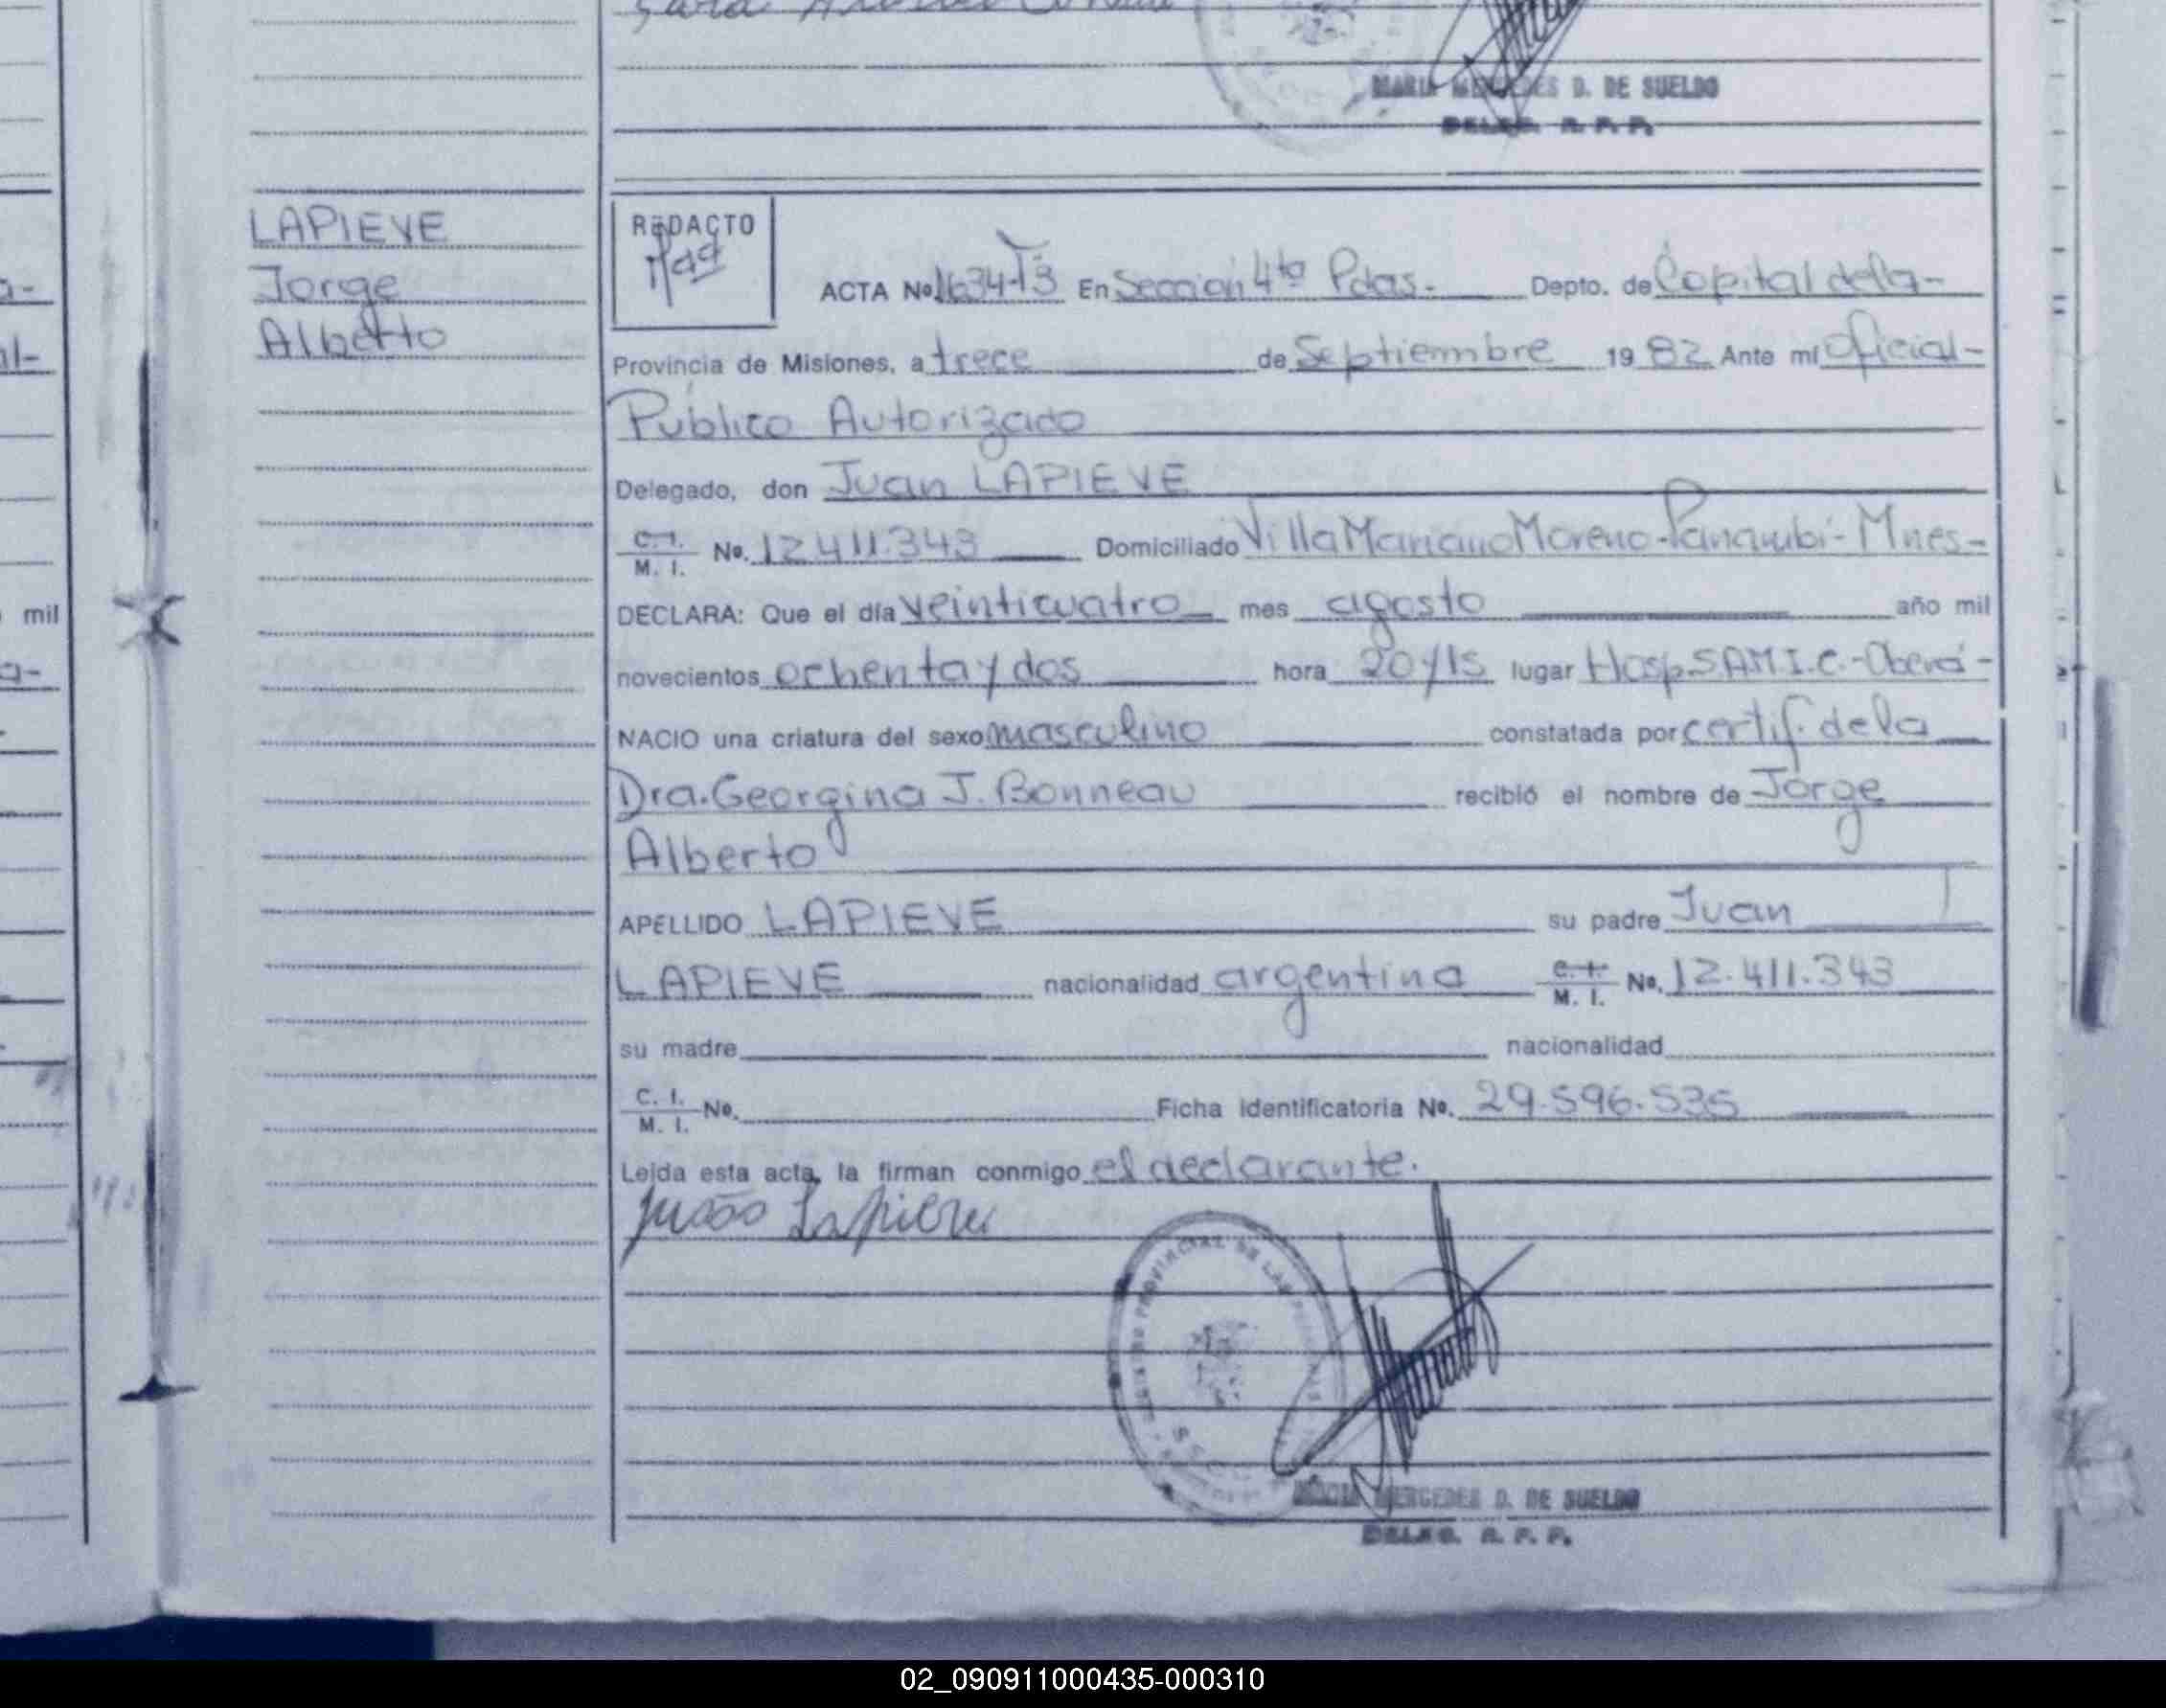 MARIA MERCEDES D. DE SUELDO
DELEG. R. P. P.
LAPIEVE
Jorge
Alberto
REDACTO
ACTA No 1634-T3 En Sección 4ta Pdas.- Depto. de Capital dela-
Provincia de Misiones, a trece de Septiembre 1982 Ante mi Oficial-
Público Autorizado
Delegado, don Juan LAPIEVE
C. I. M. I. No. 12.411.343 Domiciliado Villa Mariano Moreno-Panambí-Mnes-
DECLARA: Que el día veinticuatro mes agosto año mil
novecientos ochenta y dos hora 20 y 15 lugar Hosp S.A.M.I.C.-Oberá-
NACIO una criatura del sexo masculino constatada por certif. dela
Dra. Georgina J. Bonneau recibió el nombre de Jorge
Alberto
APELLIDO LAPIEVE su padre Juan
LAPIEVE nacionalidad argentina C. I. M. I. No. 12.411.343
su madre nacionalidad
C. I. M. I. No. Ficha Identificatoria No. 29.596.535
Leída esta acta, la firman conmigo el declarante.
MARIA MERCEDES D. DE SUELDO
DELEG. R. P. P.
mil
02_090911000435-000310